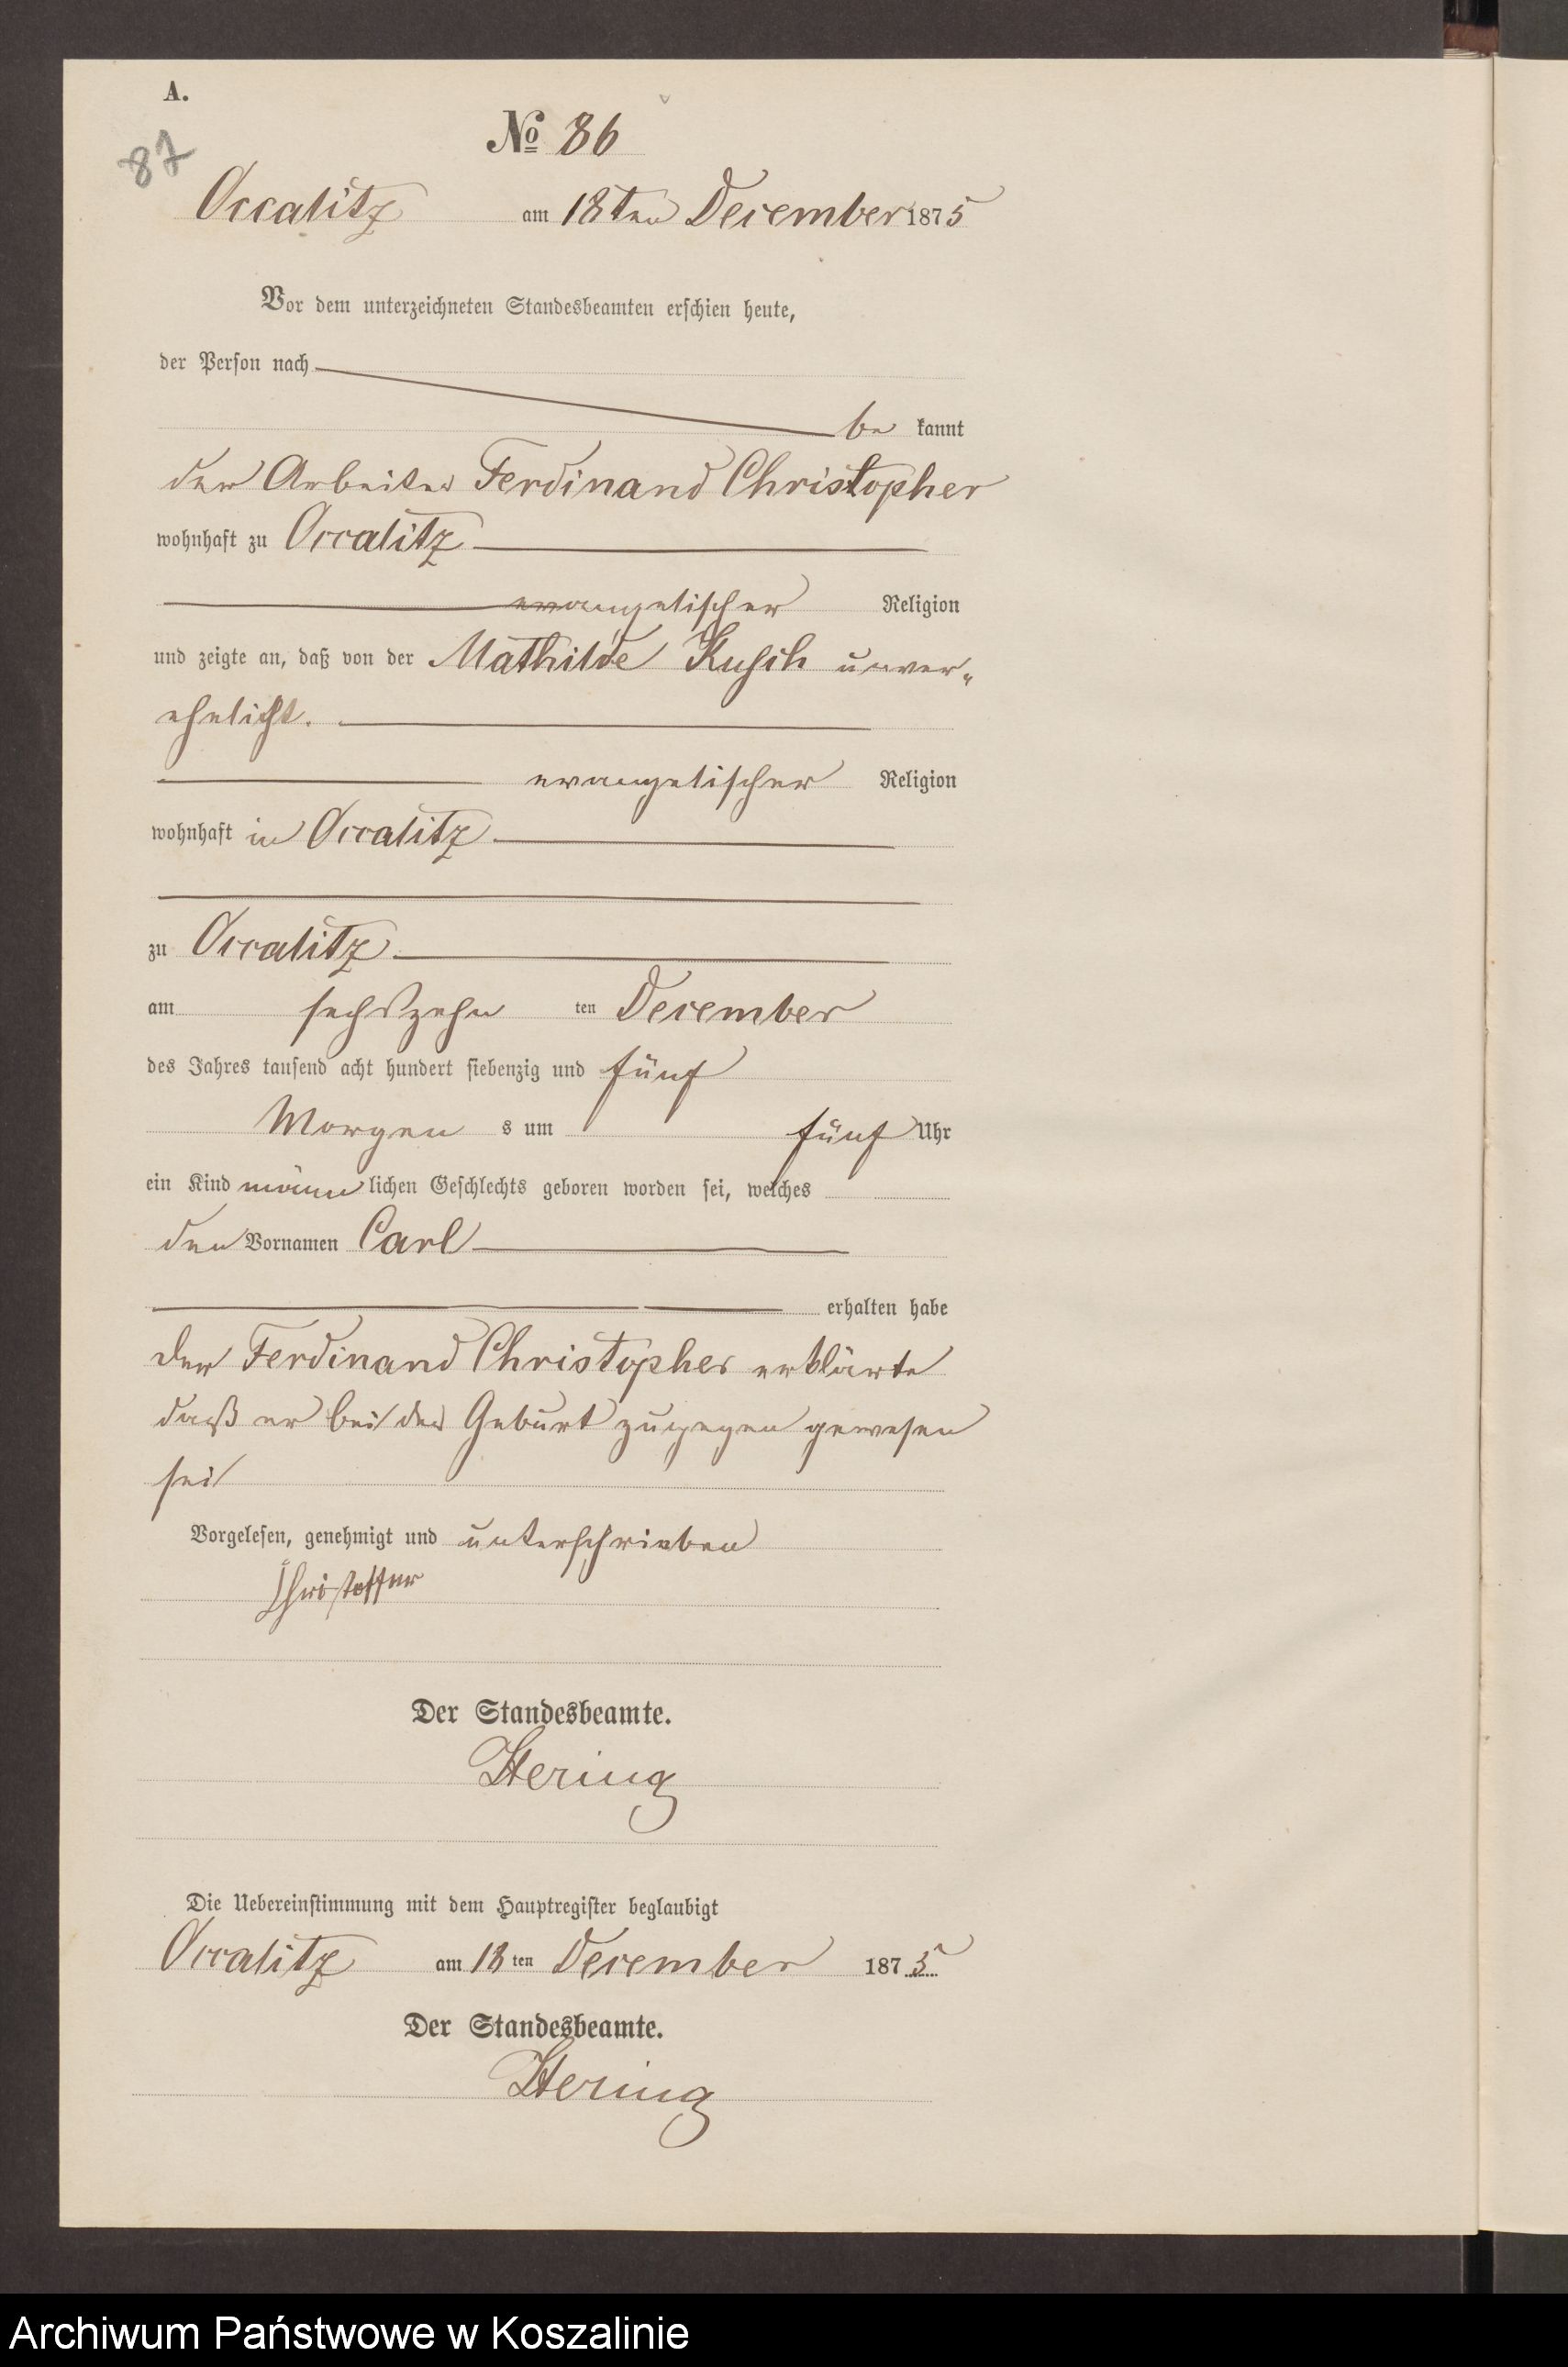 A.
87
№ 86
Occalitz am 18ten December 1875
Vor dem unterzeichneten Standesbeamten erschien heute,
der Person nach
be kannt
der Arbeiter Ferdinand Christopher
wohnhaft zu Occalitz
evangelischer Religion
und zeigte an, daß von der Mathilde Kusch unver-
ehelicht.
evangelischer Religion
wohnhaft in Occalitz
zu Occalitz
am sechszehn ten December
des Jahres tausend acht hundert siebenzig und fünf
Morgen s um fünf Uhr
ein Kind männ lichen Geschlechts geboren worden sei, welches
den Vornamen Carl
erhalten habe
der Ferdinand Christopher erklärte
daß er bei der Geburt zugegen gewesen
sei
Vorgelesen, genehmigt und unterschrieben
Christoffer
Der Standesbeamte.
Hering
Die Uebereinstimmung mit dem Hauptregister beglaubigt
Occalitz am 18 ten December 1875
Der Standesbeamte.
Hering
Archiwum Państwowe w Koszalinie